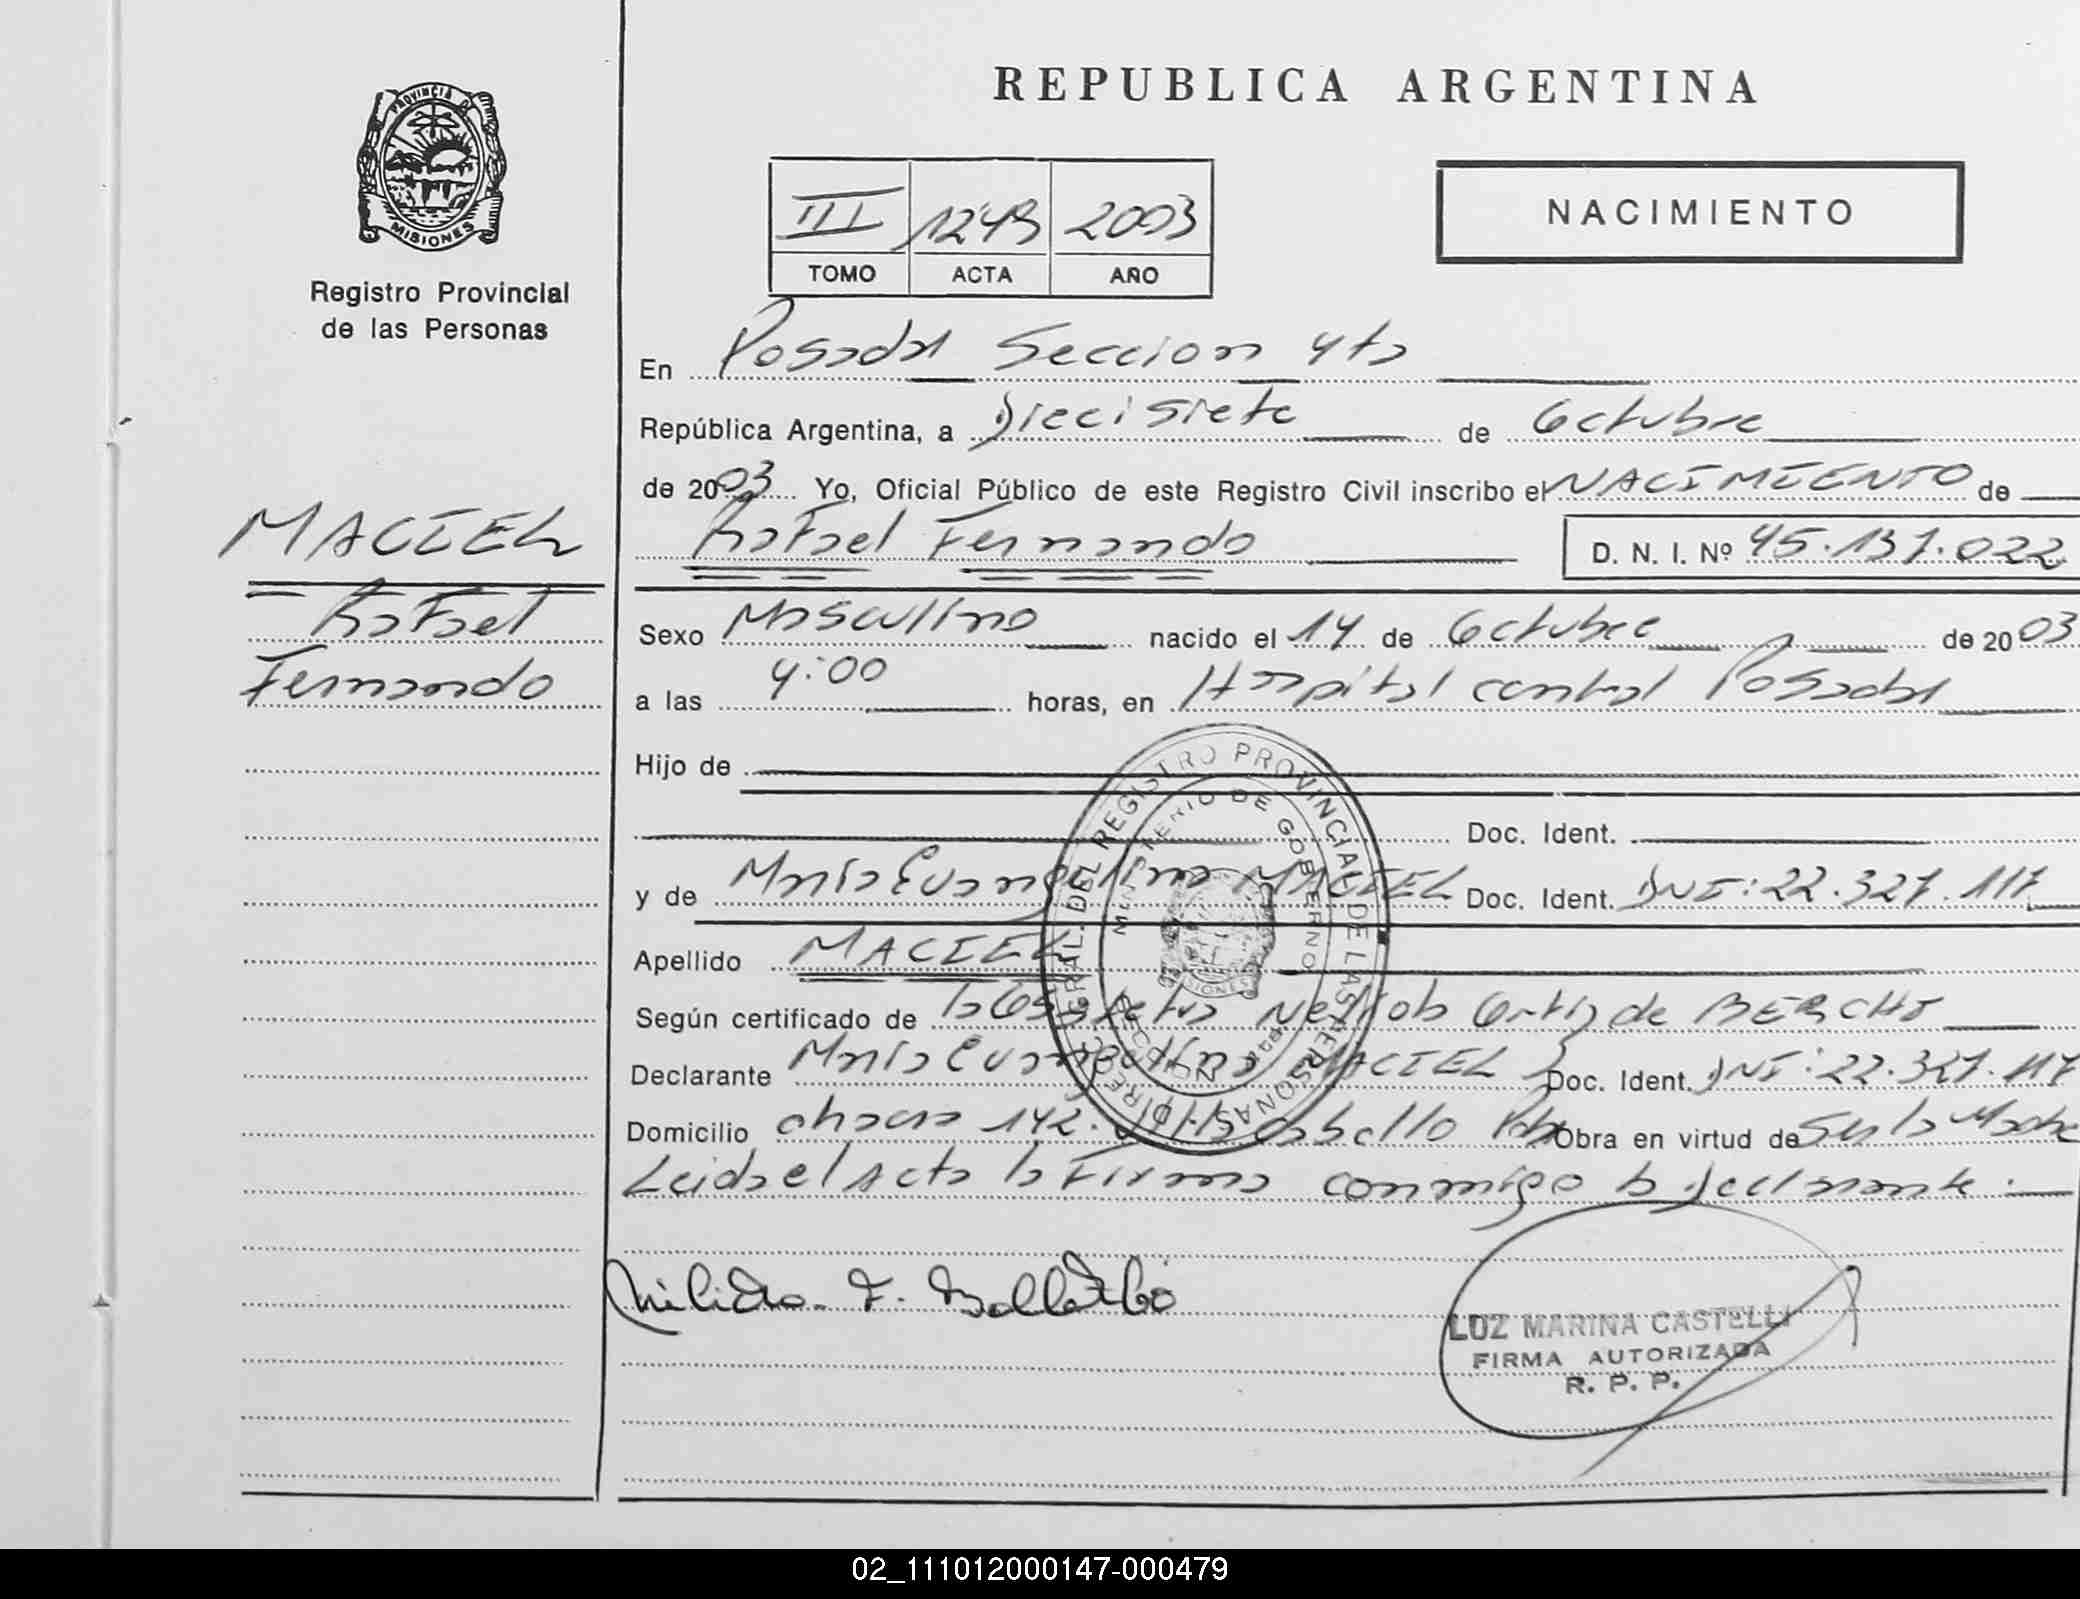 REPUBLICA ARGENTINA
PROVINCIA DE
MISIONES
Registro Provincial
de las Personas
III 1249 2003
TOMO ACTA AÑO
NACIMIENTO
En Posadas Seccion 4ta
República Argentina, a Diecisiete de Octubre
de 2003 Yo, Oficial Público de este Registro Civil inscribo el NACIMIENTO de
Rafael Fernando D. N. I. Nº 45.137.022
MACIEL
Rafael
Fernando
Sexo Masculino nacido el 14 de Octubre de 2003
a las 4:00 horas, en Hospital central Posadas
Hijo de
Doc. Ident.
y de Maria Evangelina MACIEL Doc. Ident. DNI: 22.327.117
Apellido MACIEL
Según certificado de la Obstetra Ortiz de
Declarante Maria Evangelina MACIEL Doc. Ident. DNI: 22.327.117
Domicilio chacra 142. Obra en virtud de Ser la Madre
Leida el Acta la Firma conmigo la declarante.
DIRECCION GRAL. DEL REGISTRO PROVINCIAL DE LAS PERSONAS
MINISTERIO DE GOBIERNO
MISIONES
LUZ MARINA CASTELLI
FIRMA AUTORIZADA
R. P. P.
02_111012000147-000479